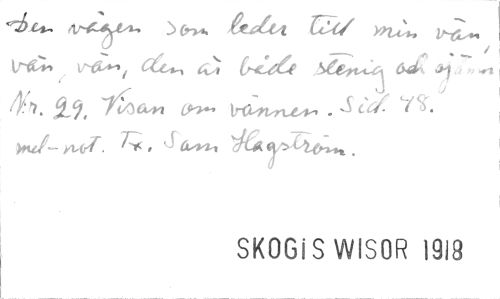 Den vägen som leder till min vän,
vän, vän, den är både stenig och ojämn
Nr. 29. Visan om vännen. Sid. 48.
mel-not. Tx. Sam Hagström.
SKOGIS WISOR 1918